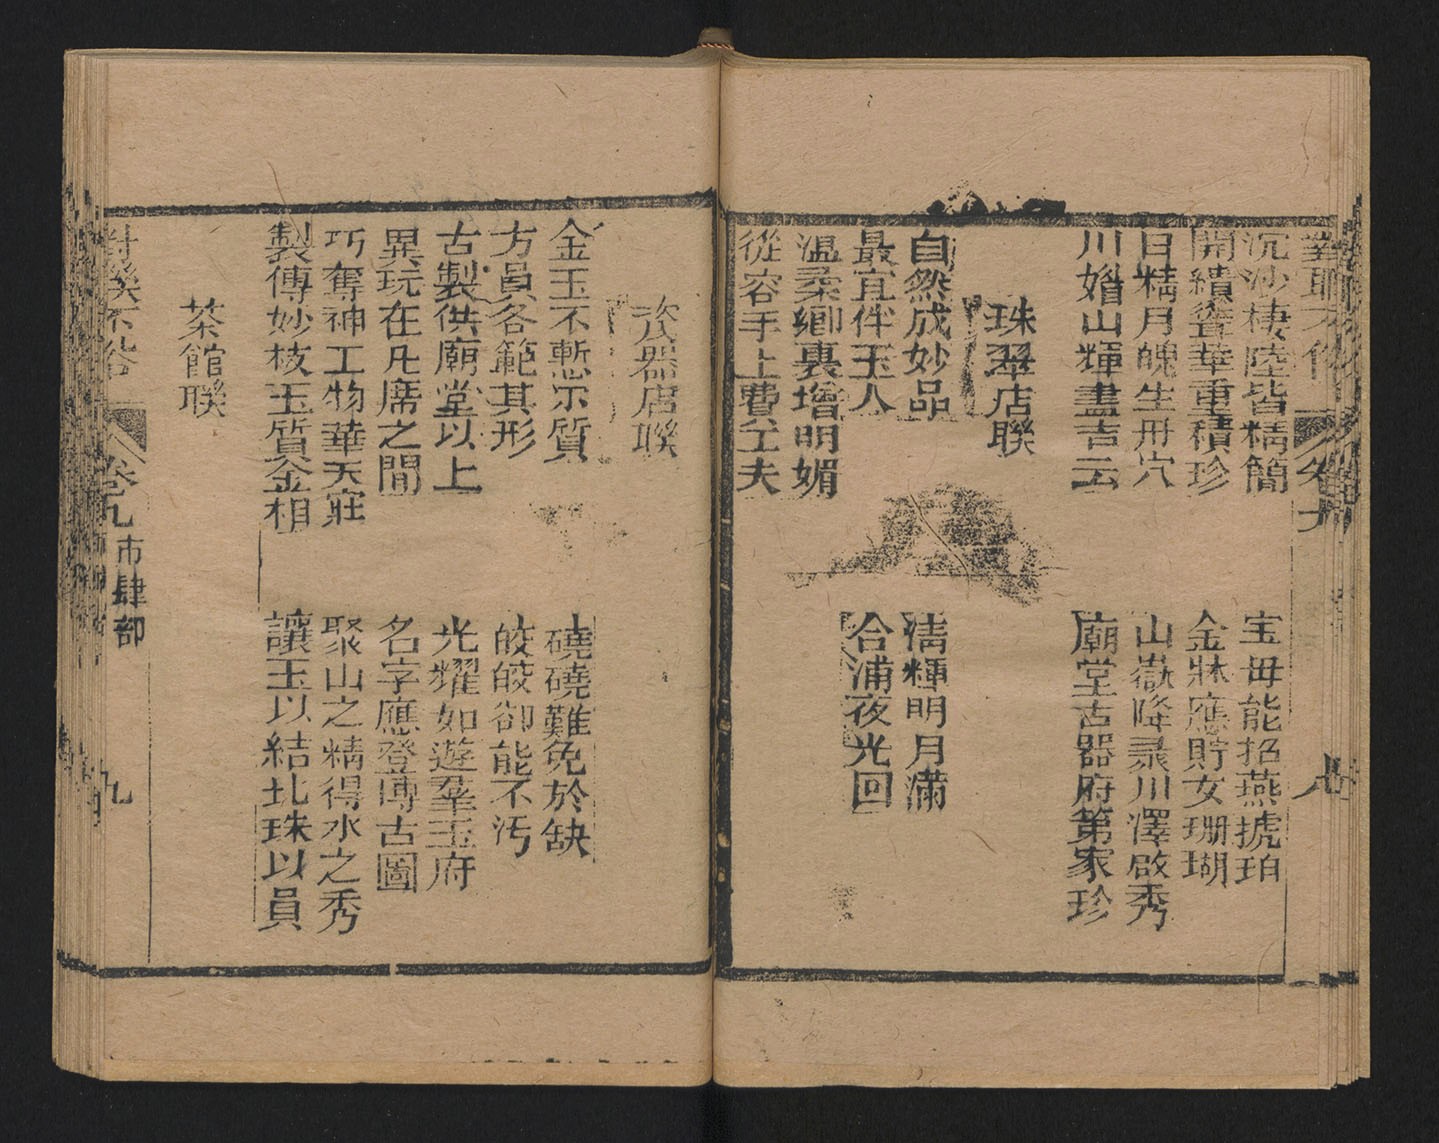 沉沙棲陸皆精簡
宝毋能招燕琥珀
開績聳華重積珍
金牀應貯女珊瑚
日精月魄生丹穴
山嶽降彔川澤啟秀
川媚山輝盡吉云
廟堂古器府第家珍
珠翠店聯
自然成妙品
清輝明月滿
最宜伴玉人
合浦夜光回
溫柔鄉裏增明媚
從容手上費工夫
瓷器店聯
金玉不慙尔質
磽磽難免於缺
方員各範其形
皎皎卻能不汚
古製供廟堂以上
光耀如遊羣玉府
異玩在几席之間
名字應登博古圖
巧奪神工物華天寶
聚山之精得水之秀
製傳妙枝玉質金相
讓玉以結北珠以員
茶館聯
對聯不俗
卷九
市肆部
九